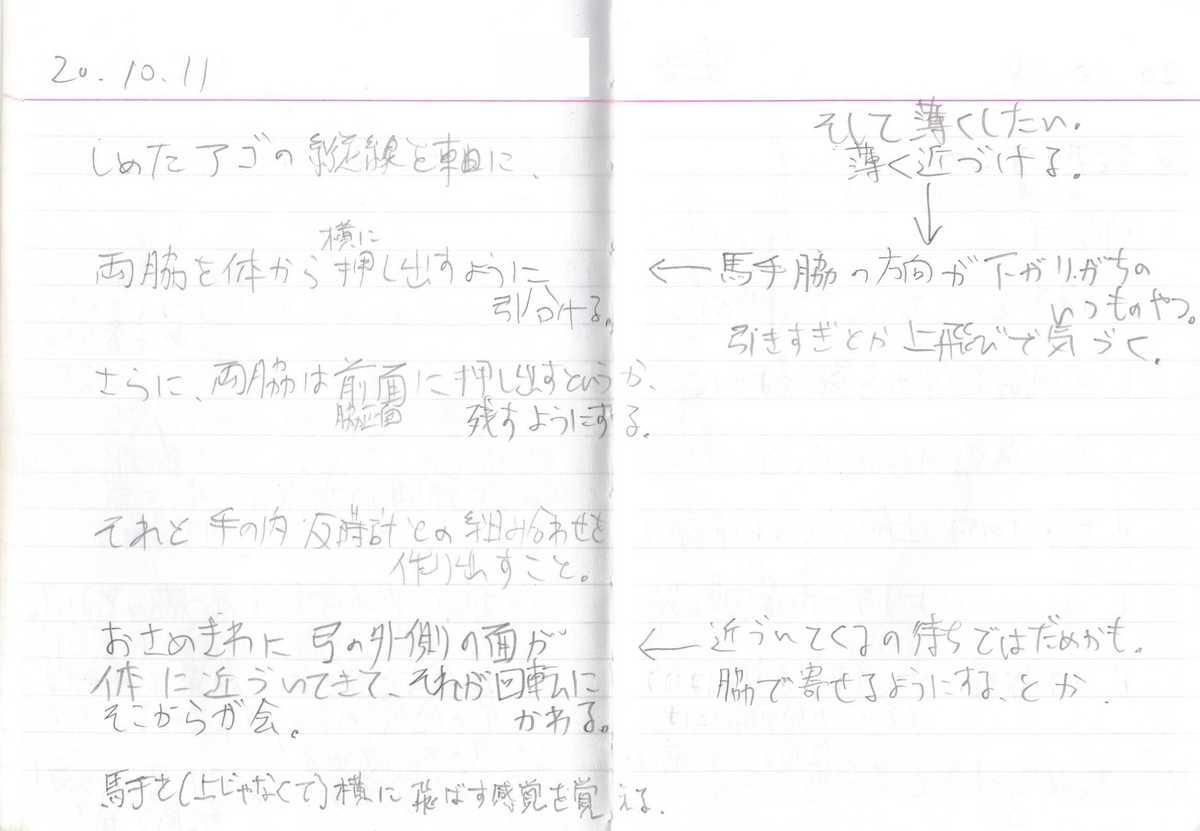 20.10.11
しめたアゴの縦線を軸に、
横に
両脇を体から押し出すように、
引分ける。
さらに、両脇は前面に押し出すというか、
脇正面
残すようにする。
それと手の内反時計との組み合わせを
作り出すこと。
おさめぎわに弓の外側の面が
体に近づいてきて、それが回転に
かわる。
そこからが会。
馬手を(上じゃなくて)横に飛ばす感覚を覚える。
そして薄くしたい。
薄く近づける。
↓
← 馬手脇の方向が下がりがちの
いつものやつ。
引きすぎとか上飛びで気づく。
← 近づいてくるの待ちではだめかも。
脇で寄せるようにする、とか